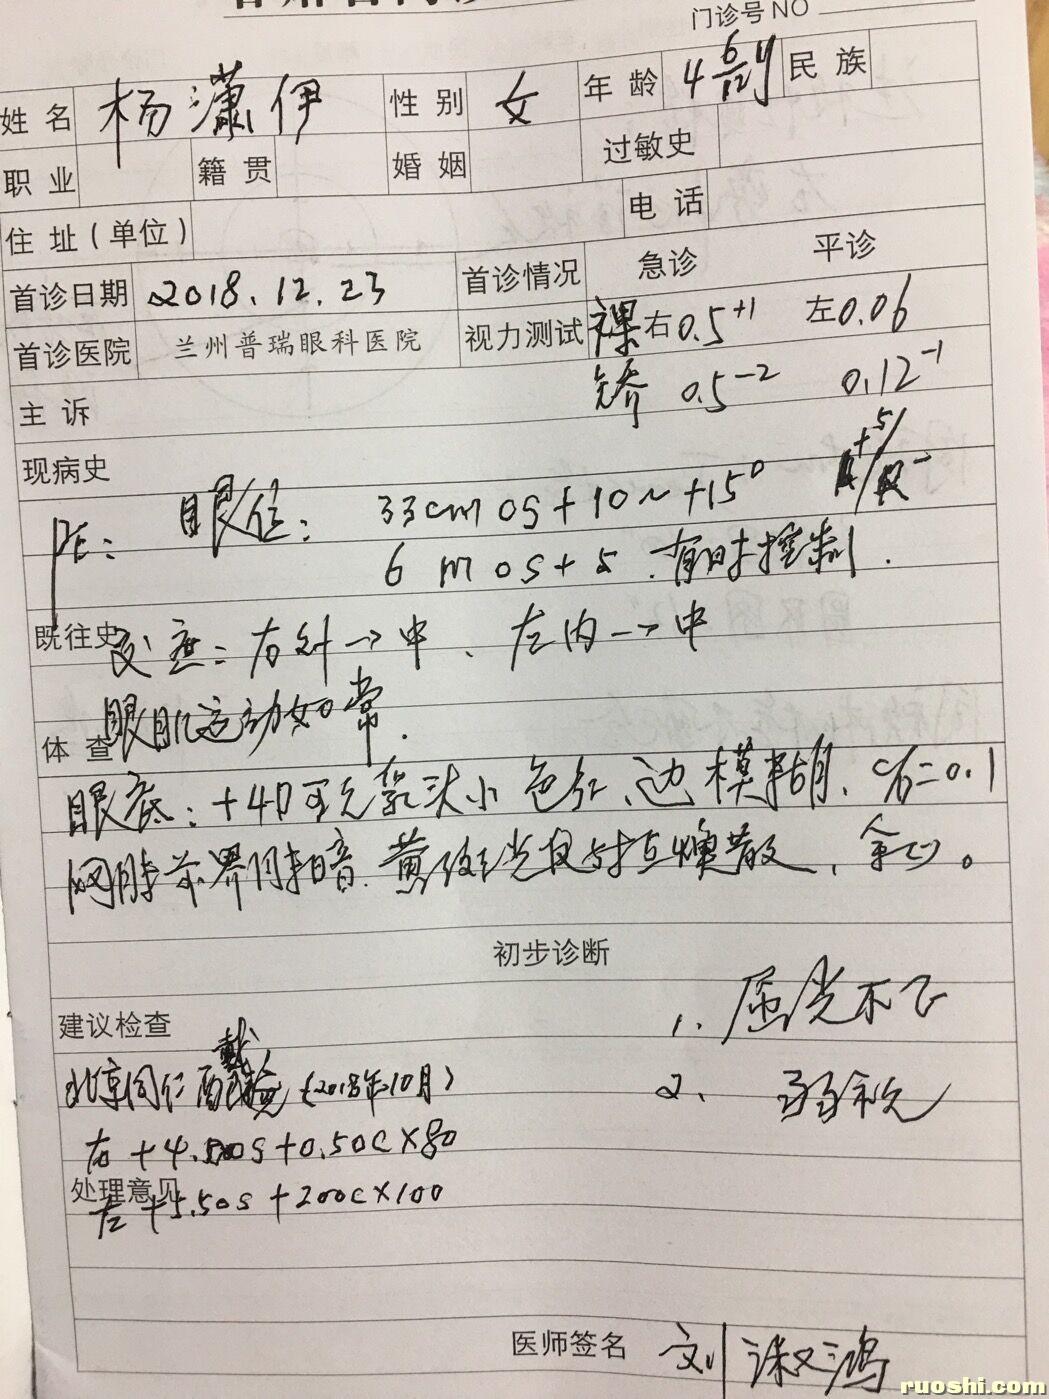 门诊号 NO
姓 名 杨潇伊 性 别 女 年 龄 4 6/12岁 民 族
职 业 籍 贯 婚 姻 过敏史
住 址(单位) 电 话
首诊日期 2018.12.23 首诊情况 急诊 平诊
首诊医院 兰州普瑞眼科医院 视力测试 裸 右0.5+1 左0.06
主 诉 矫 0.5-2 0.12-1
现病史
PE: 眼位: 33cm OS+10~+15°
6 m OS+5 .有时控制.
既往史
右外→中、左内→中
眼肌运动如常.
体 查
眼底:+4D 乳头小 色红、边模糊. C/D=0.1
初步诊断
1. 屈光不正
建议检查
北京同仁 (2018年10月)
2. 弱视
右 +4.50S+0.50C×80
处理意见
左 +5.50S +200C×100
医师签名 刘淑鸿
ruoshi.com